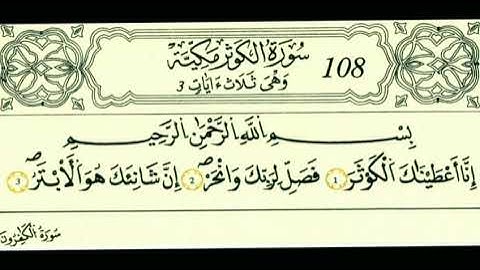 سُورَةُ الكَوثَر مَكِيَّة 108
وَهْىَ ثَلَاثُ ءَايَاتٍ 3
بِسْمِ اِ۬للَّهِ اِ۬لرَّحْمَٰنِ اِ۬لرَّحِيمِ
إِنَّا أَعْطَيْنَاكَ اَ۬لْكَوْثَرَ 1 فَصَلِّ لِرَبِّكَ وَانْحَرْ 2 إِنَّ شَانِئَكَ هُوَ اَ۬لْأَبْتَرُ 3
سُورَةُ الْكَٰفِرُونَ